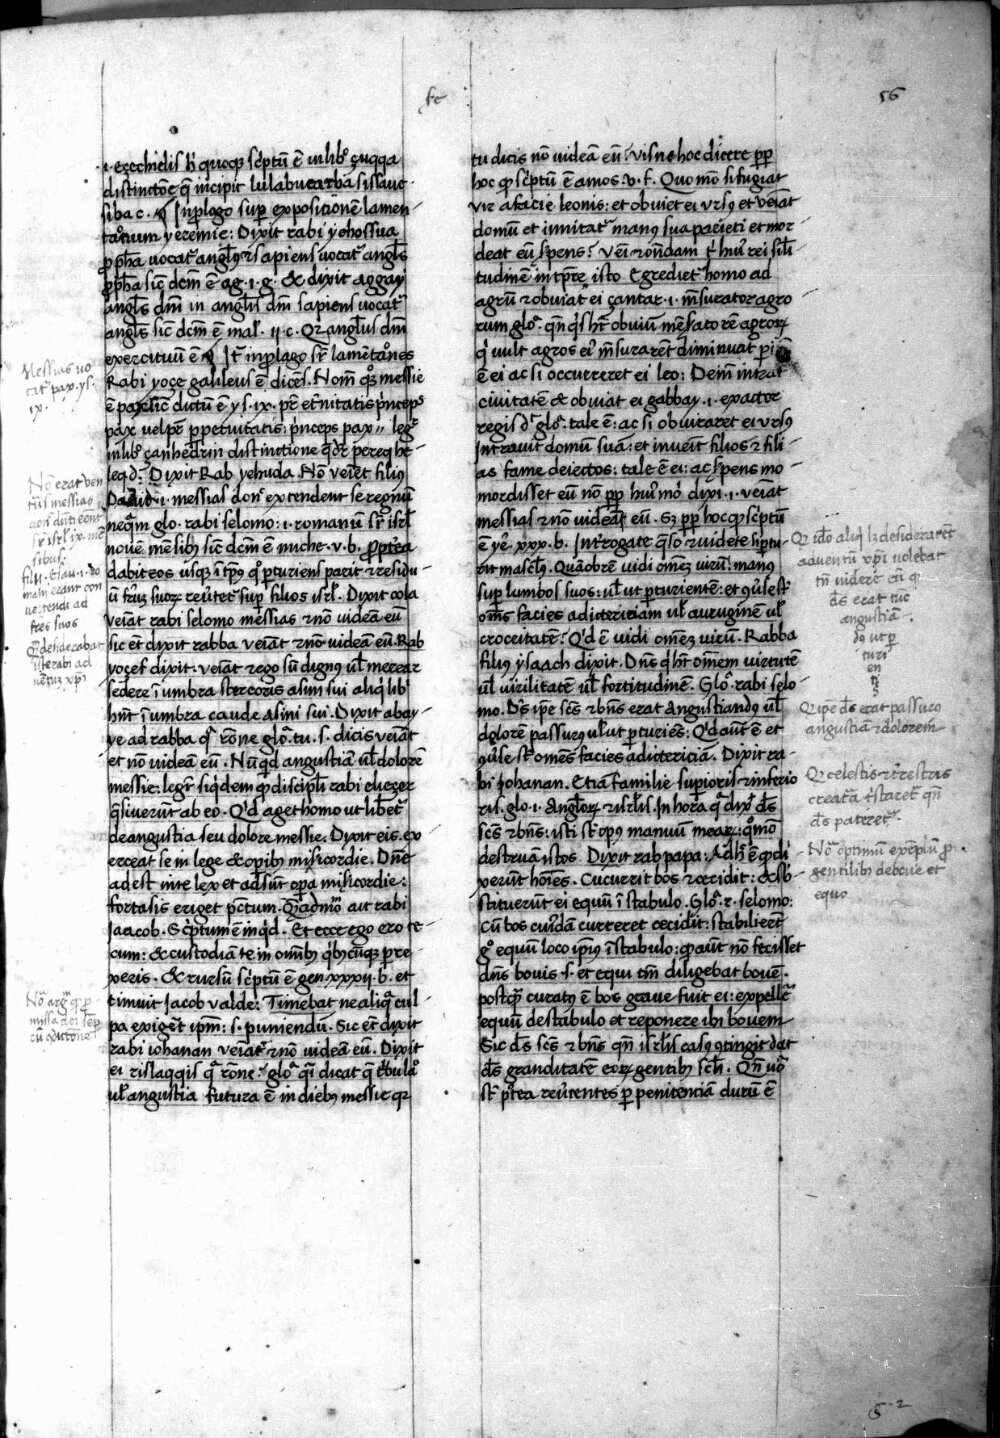 fe
56
.i. eçechielis hi quoque sc̃ptũ ẽ in libº çuqqa
distinctõe q̃ incipit lulabuearba sissaue
siba c. ¶ In prologo sup expositionẽ lamen
tatorium yeremie: Dixit rabi yehossua
ppħa uocat᷑ anglus ⁊ sapiens uocat᷑ angls̃
ppħa sic̃ dcm̃ ẽ ag. i. g. & dixit aggay
angls̃ dñi in angl̃is dñi sapiens uocat᷑
angls̃ sic̃ dcm̃ ẽ mal. ij. c. Qr anglus dñi
exercituũ ẽ ¶ It̃ in prologo sr̃ lamẽtatõnes
Rabi yoçe galileus ẽ dicẽs. Nom̃ qº messie
ẽ pax sic̃ dictũ ẽ ys. ix. pr̃ et̃nitatis prĩceps
pax uel pr̃ perpetuitatis: prĩnceps pax. leg᷑
in libº çanhedrin distinctione q̃ dr̃ pereq he
leq d. Dixit Rab yehuda. Nõ ueiet filius
Dauid .i. messias don᷑ extendent se regnũ
neq̃m glo. rabi selomo: .i. romanũ sr̃ isrl̃
nouẽ mẽsibus sic̃ dcm̃ ẽ miche. v. b. propt̃ea
dabit eos usque ĩ tp̃us qº pturiens pariet ⁊ residu
ũ frat̃rum suorum reu̾tet᷑ sup filios isrl̃. Dixit oola
ueiat rabi selomo messias ⁊ nõ uideã eũ
sic et̃ dixit rabba ueiat ⁊ nõ uideã eũ. Rab
yoçef dixit. ueiat ⁊ ego sũ dignus ul̃ merear
sedere ĩ umbra stercoris asini sui aliq̃ lib̃
hñt ĩ umbra caude asini sui. Dixit abay
ye ad rabba qª rõne glo. tu. s. dicis ueiat
et nõ uideã eũ. Nũqd angustiã ul̃ dolorẽ
messie: legr̃ siqdem quod discipl̃i rabi eleezer
q̃siuerũt ab eo. Qd aget homo ut libet᷑
de angustia seu dolore messie. Dixit eis. ex
erceat se in lege & opibus misericordie. Dñe
adest in te lex et adsũt opa misericordie:
fortasis eriget pctum. Q̃admo᷑ ait rabi
Jaacob. Sc̃ptum ẽ inqd. Et ecce ego ero te
cum: & custodiã te in omĩbus qbuscũque perre
xeris. & rursũ sc̃ptũ ẽ gen. xxxij. b. et
timuit Jacob valde: Timebat ne aliq̃ cul
pa exiget ipm̃: s. puniendũ. Sic et̃ dixit
rabi iohanan ueiat ⁊ nõ uideã eũ. Dixit
ei rislaqqis qª rõne? glo. qĩ dicat q̃ t᷑bula
ul̃ angustia futura ẽ in diebus messie qr
tu dicis nõ uideã eũ? uis ne hoc dicere pp
hoc quod sc̃ptũ ẽ amos. v. f. Quo mõ si fugiat
uir a facie leonis: et obuiet ei ursus et ueiat
domũ et innitat᷑ manus sua parieti et mor
deat eũ s̃pens? Vei ⁊ oñdam t᷑ huius rei sil̃i
tudinẽ in tp̃re isto Egrediet᷑ homo ad
agrũ ⁊ obuiat ei çantar .i. mẽsurator agro
rum glo. qñ qs hẽt obuiũ mẽsatorẽ agrorum
q uult agros ei᷑ mẽsurare
ẽ ei ac si occurreret ei leo: Dem̃ intrat
ciuitatẽ & obuiat ei gabbay .i. exactor
regis dr̃ glo. tale ẽ: ac si obuiraret ei ursus
Intrauit domũ suã: et inuenit filios ⁊ fili
as fame deiectos: tale ẽ ei: ac s̃pens mo
mordisset eũ nõ pp huius mo᷑ dixi .i. ueiat
messias ⁊ nõ uideã eũ. Sz pp hoc quod sc̃ptũ
ẽ ye. xxx. b. Interrogate q̃so ⁊ uidete si ptu
rit mascl̃us. Quã obrẽ uidi omẽz uirũ: manus
sup lumbos suos: ul̃ ut pturientẽ: et ꝯu̾se st̃
om̃s facies adictericiam ul̃ auruginẽ ul̃
croceitatẽ? Qd ẽ uidi omẽz uirũ. Rabba
filius ysaach dixit. Dñs q hẽt omẽm uirtutẽ
ul̃ uirilitatẽ ul̃ fortitudinẽ. Glo. rabi selo
mo. Ds̃ ipe scs̃ ⁊ bñs erat Angustiandus ul̃
dolorẽ passurus ul̃ ut pturiẽs: Qd aut̃ ẽ et
ꝯu̾se st̃ omẽs facies adictericiã. Dixit ra
bi Johanan. Etiã familie supioris ⁊ inferio
ris. glo .i. Anglorum ⁊ isrl̃is. In hora qª dixº ds̃
scs̃ ⁊ bñs: isti st̃ opus manuũ mearum: qºmõ
destruã istos. Dixit rab papa: Adh̃ ẽ quod di
xerũt hoĩes. Cucurrit bos ⁊ cecidit: & sb
stituerũt ei equũ ĩ stabulo. Glo. r. selomo:
Cũ bos cuidã curreret cecidit: stabiliẽt
gº equũ loco ipius ĩ stabulo: quod aut̃ nõ fecisset
dñs bouis s. et equi tm̃ diligebat bouẽ.
postq̃ curatus ẽ bos graue fuit ei: expellẽ
equũ de stabulo et reponere ibi bouem
Sic ds̃ scs̃ ⁊ bñs qñ isrl̃is casus ꝯtingit dat
ds̃ granditatẽ eorum gentibus scl̃i. Qñ uº
st̃ pt̃ea reu̾tentes p penitenciã durũ ẽ
Messias uo
cat᷑ pax. ys.
ix.
Nõ erat uen
tũs messias
sr̃ isrl̃ ix mẽ
sibus:
filij. Esau .i. ro
mani erant con
uertendi ad
frẽs suos
q̃ desiderabat
isti rabi ad
uẽtum xpi
Nõ argm̃ q p
missa dei sẽp
cũ ꝯditione
Qr ido aliq lz desiderarẽt
aduentũ xpi nolebat
tñ uidere eũ q
ds̃ erat tũc
angustiã
dus ut p
turi
en
ti
s
Qr ipe ds̃ erat passurus
angustiã ⁊ dolorem
Qr celestis ⁊ t᷑restris
creatª t᷑staret᷑ qñ
ds̃ pateret᷑.
Nõ optimũ exẽplũ p
gentilibus de boue et
equo
5-2